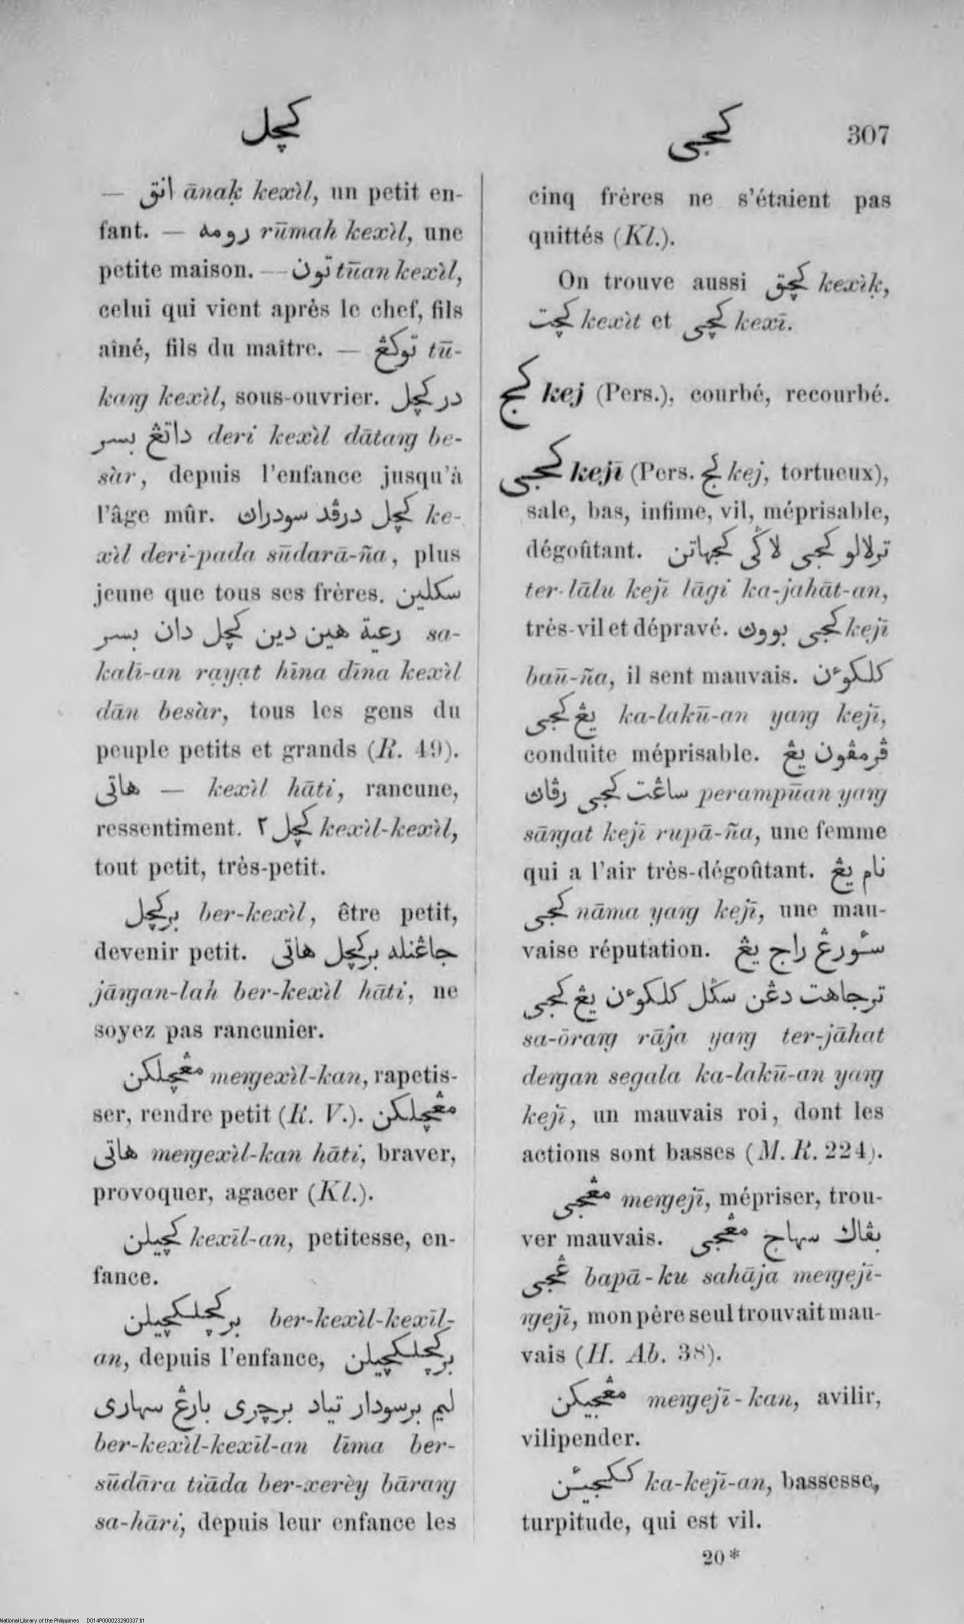 کچل
کجی 307
— انق ānaḳ kexìl, un petit en-
fant. — رومه rūmah kexìl, une
petite maison. — توٓن tūan kexìl,
celui qui vient après le chef, fils
aîné, fils du maître. — توکڠ tū-
kaŋ kexìl, sous-ouvrier. در کچل
داتڠ بسر deri kexìl dātaŋ be-
sàr, depuis l'enfance jusqu'à
l'âge mûr. کچل درڤد سودراث ke-
xìl deri-pada sūdarā-ña, plus
jeune que tous ses frères. سکلین
رعية هین دین کچل دان بسر sa-
kalī-an rayat hīna dīna kexìl
dān besàr, tous les gens du
peuple petits et grands (R. 49).
هاتی — kexìl hāti, rancune,
ressentiment. کچل ٢ kexìl-kexìl,
tout petit, très-petit.
برکچل ber-kexìl, être petit,
devenir petit. جاڠنله برکچل هاتی
jāŋan-lah ber-kexìl hāti, ne
soyez pas rancunier.
مڠچلکن meŋexìl-kan, rapetis-
ser, rendre petit (R. V.). مڠچلکن
هاتی meŋexìl-kan hāti, braver,
provoquer, agacer (Kl.).
کچیلن kexīl-an, petitesse, en-
fance.
برکچلکچیلن ber-kexìl-kexīl-
an, depuis l'enfance, برکچلکچیلن
لیم برسودار تیاد برچری بارڠ سهاری
ber-kexìl-kexīl-an līma ber-
sūdāra tiāda ber-xerèy bāraŋ
sa-hāri, depuis leur enfance les
cinq frères ne s'étaient pas
quittés (Kl.).
On trouve aussi کچق kexìḳ,
کچت kexìt et کچی kexī.
کج kej (Pers.), courbé, recourbé.
کجی kejī (Pers. کج kej, tortueux),
sale, bas, infime, vil, méprisable,
dégoûtant. ترلالو کجی لاکی کجهاتن
ter-lālu kejī lāgi ka-jahāt-an,
très-vil et dépravé. کجی بووث kejī
baū-ña, il sent mauvais. کلکوءن
یڠ کجی ka-lakū-an yaŋ kejī,
conduite méprisable. ڤرمڤون یڠ
ساڠت کجی رڤاث perampūan yaŋ
sāŋat kejī rupā-ña, une femme
qui a l'air très-dégoûtant. نام یڠ
کجی nāma yaŋ kejī, une mau-
vaise réputation. سٔورڠ راج یڠ
ترجاهت دڠن سکل کلکوءن یڠ کجی
sa-ōraŋ rāja yaŋ ter-jāhat
deŋan segala ka-lakū-an yaŋ
kejī, un mauvais roi, dont les
actions sont basses (M. R. 224).
مڠجی meŋejī, mépriser, trou-
ver mauvais. بڤاك سهاج مڠجی
ڠجی bapā-ku sahāja meŋejī-
ŋejī, mon père seul trouvait mau-
vais (H. Ab. 38).
مڠجیکن meŋejī-kan, avilir,
vilipender.
ککجیئن ka-kejī-an, bassesse,
turpitude, qui est vil.
20*
National Library of the Philippines D014P00002329033​7.tif